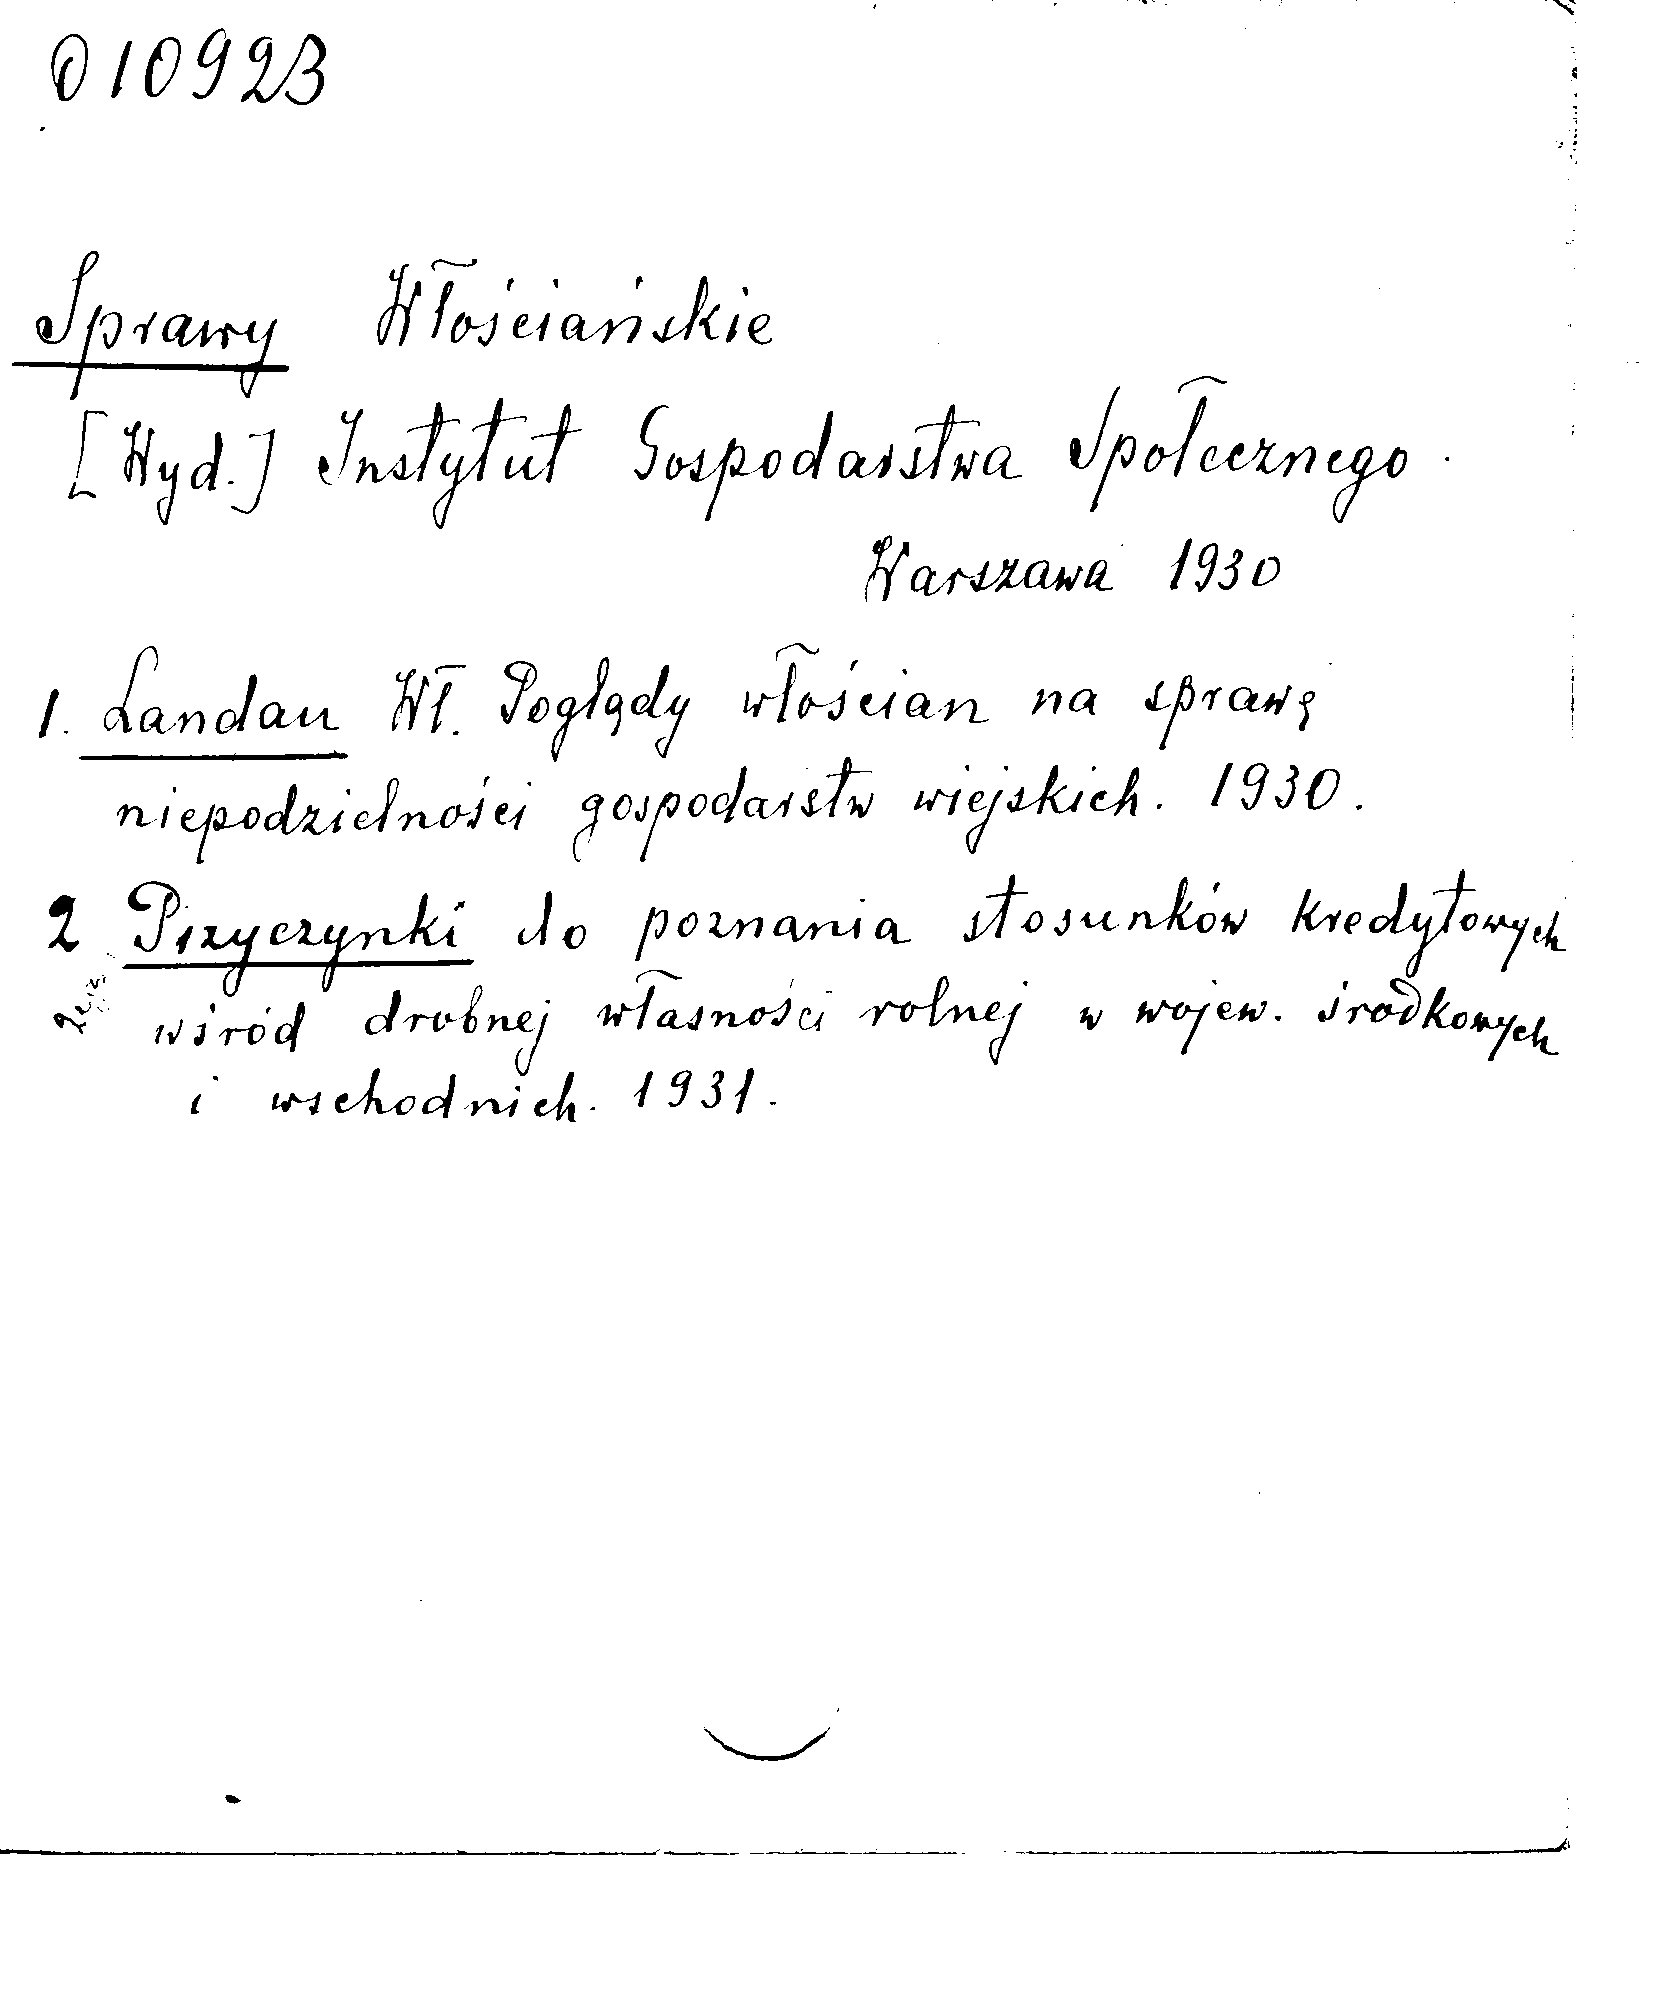 010923
Sprawy Włościańskie
[Wyd.] Instytut Gospodarstwa Społecznego.
Warszawa 1930
1. Landau Wł. Poglądy włościan na sprawę
niepodzielności gospodarstw wiejskich. 1930.
2 Przyczynki do poznania stosunków kredytowych
wśród drobnej własności rolnej w wojew. środkowych
i wschodnich. 1931.